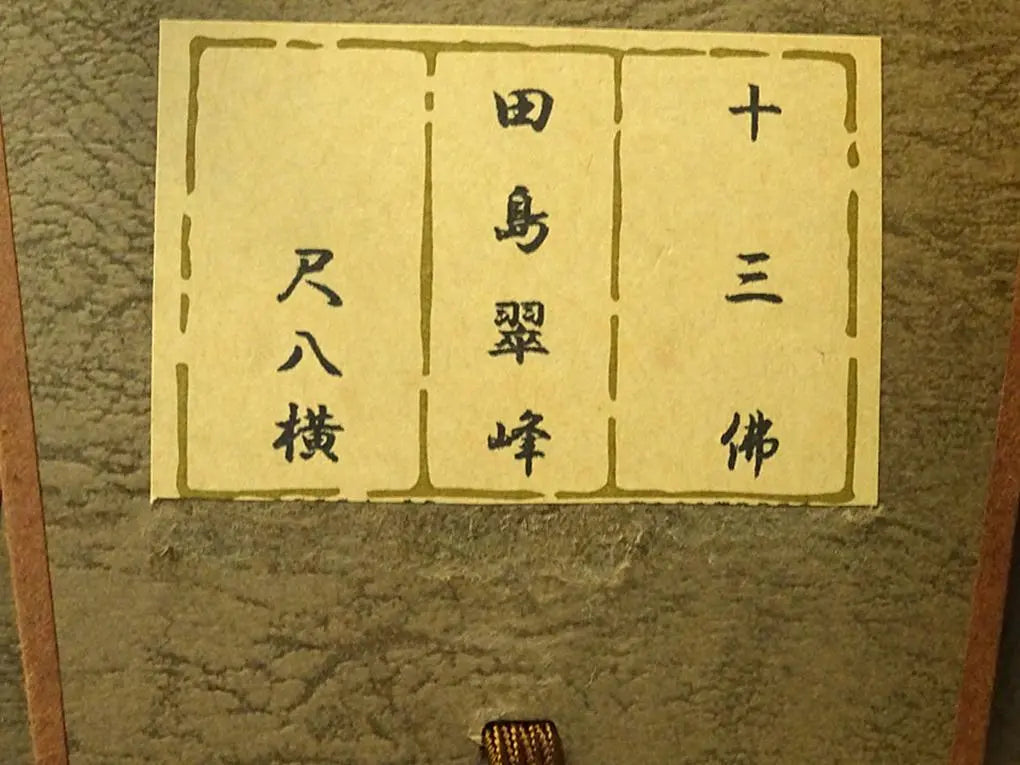 十三佛
田島翠峰
尺八横